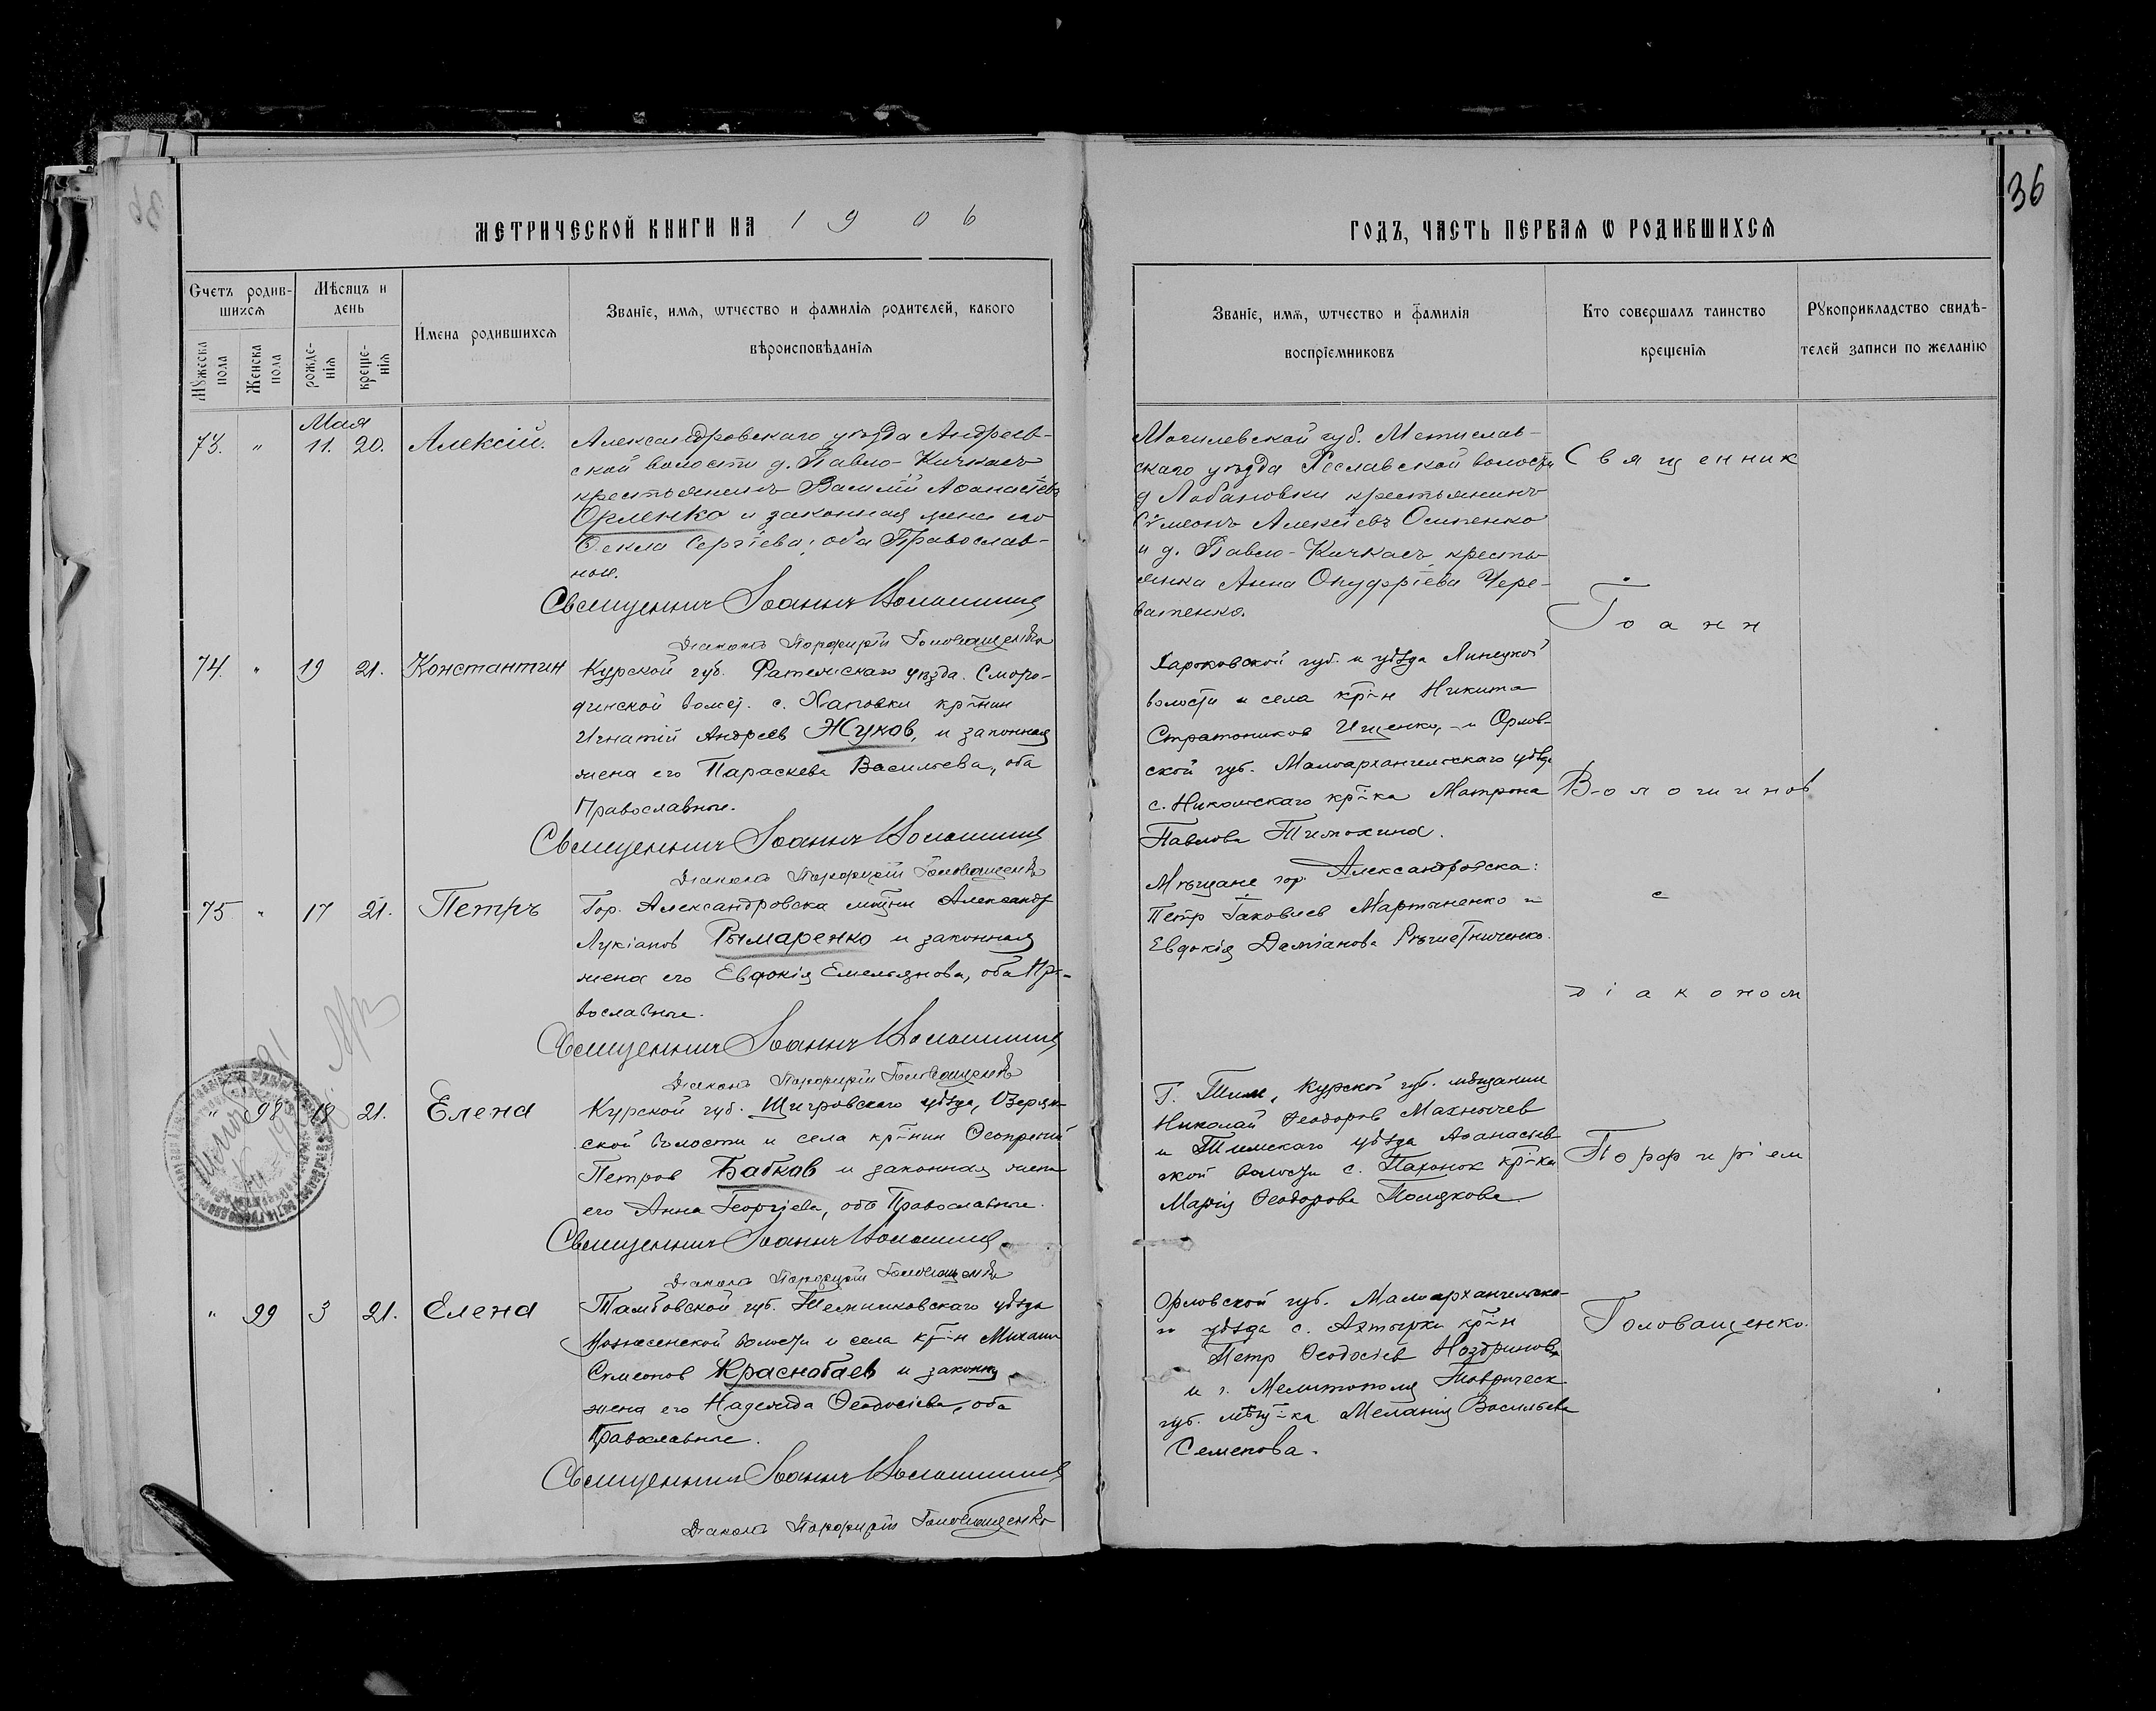 36
МЕТРИЧЕСКОЙ КНИГИ НА 1906
ГОДЪ, ЧАСТЬ ПЕРВАЯ Ѡ РОДИВШИХСЯ
Счетъ родив-
шихся
Мужеска пола
Женска пола
Мѣсяцъ и
день
рожде-
нія
креще-
нія
Имена родившихся
Званіе, имя, ѡтчество и фамилія родителей, какого
вѣроисповѣданія
Званіе, имя, ѡтчество и фамилія
воспріемниковъ
Кто совершалъ таинство
крещенія
Рукоприкладство свидѣ-
телей записи по желанію
Мая
73. " 11. 20. Алексій.
Александровскаго уѣзда Андреев-
ской волости д. Павло-Кичкасъ
крестьянинъ Василій Аѳанасіевъ
Орленко и законная жена его
Ѳекла Сергіева, оба Православ-
ные.
Священникъ Іоаннъ
Діаконъ Порфирій Головащенко
Могилевской губ. Мстислав-
скаго уѣзда волости
д. Лобановки крестьянинъ
Сѵмеонъ Алексіевъ Осипенко
и д. Павло-Кичкасъ, кресть-
янка Анна Онуфріева Чере-
ватенко.
74. " 19 21. Константин
Курской губ. Фатежскаго уѣзда. Сморо-
динской волост. с. Хаповки кр-нин
Игнатій Андреев Жуков, и законная
жена его Параскева Васильева, оба
Православные.
Священникъ Іоаннъ
Діаконъ Порфирій Головащенко
Харьковской губ. и уѣзда Липецкой
волости и села кр-н Никита
Стратоников Ищенко, и Орлов-
ской губ. Малоархангельскаго уѣзда
с. Никольскаго кр-ка Матрона
Павлова Тимохина.
75 " 17 21. Петръ
Гор. Александровска мѣщ-нин Александр
Лукіанов Рымаренко и законная
жена его Евдокія Емельянова, оба Пра-
вославные.
Священникъ Іоаннъ
Діаконъ Порфирій Головащенко
Мѣщане гор. Александровска:
Петр Іаковлев Мартыненко и
Евдокія Даміанова
" 98 18 21. Елена
Курской губ. Щигровскаго уѣзда, Озерян-
ской волости и села кр-нин
Петров Бабков и законная жена
его Анна Георгіева, оба Православные.
Священникъ Іоаннъ
Діаконъ Порфирій Головащенко
Г. Тим, Курской губ. мѣщанин
Николай Ѳеодоров
и Тимскаго уѣзда Аѳанасіев-
ской волости с. кр-ка
Марія Ѳеодорова Полякова
" 99 3 21. Елена
Тамбовской губ. Темниковскаго уѣзда
Вознесенской волости и села кр-н Михаил
Сѵмеонов Краснобаев и законная
жена его Надежда Ѳеодосіева, оба
Православные.
Священникъ Іоаннъ
Діаконъ Порфирій Головащенко
Орловской губ. Малоархангельска-
го уѣзда с. Ахтырки кр-н
Петр Ѳеодосіев
и г. Мелитополя Тавричес
губ. мѣщ-ка Меланія Васильева
Семенова.
Священник
Іоанн
с
діаконом
Порфиріем
Головащенко.